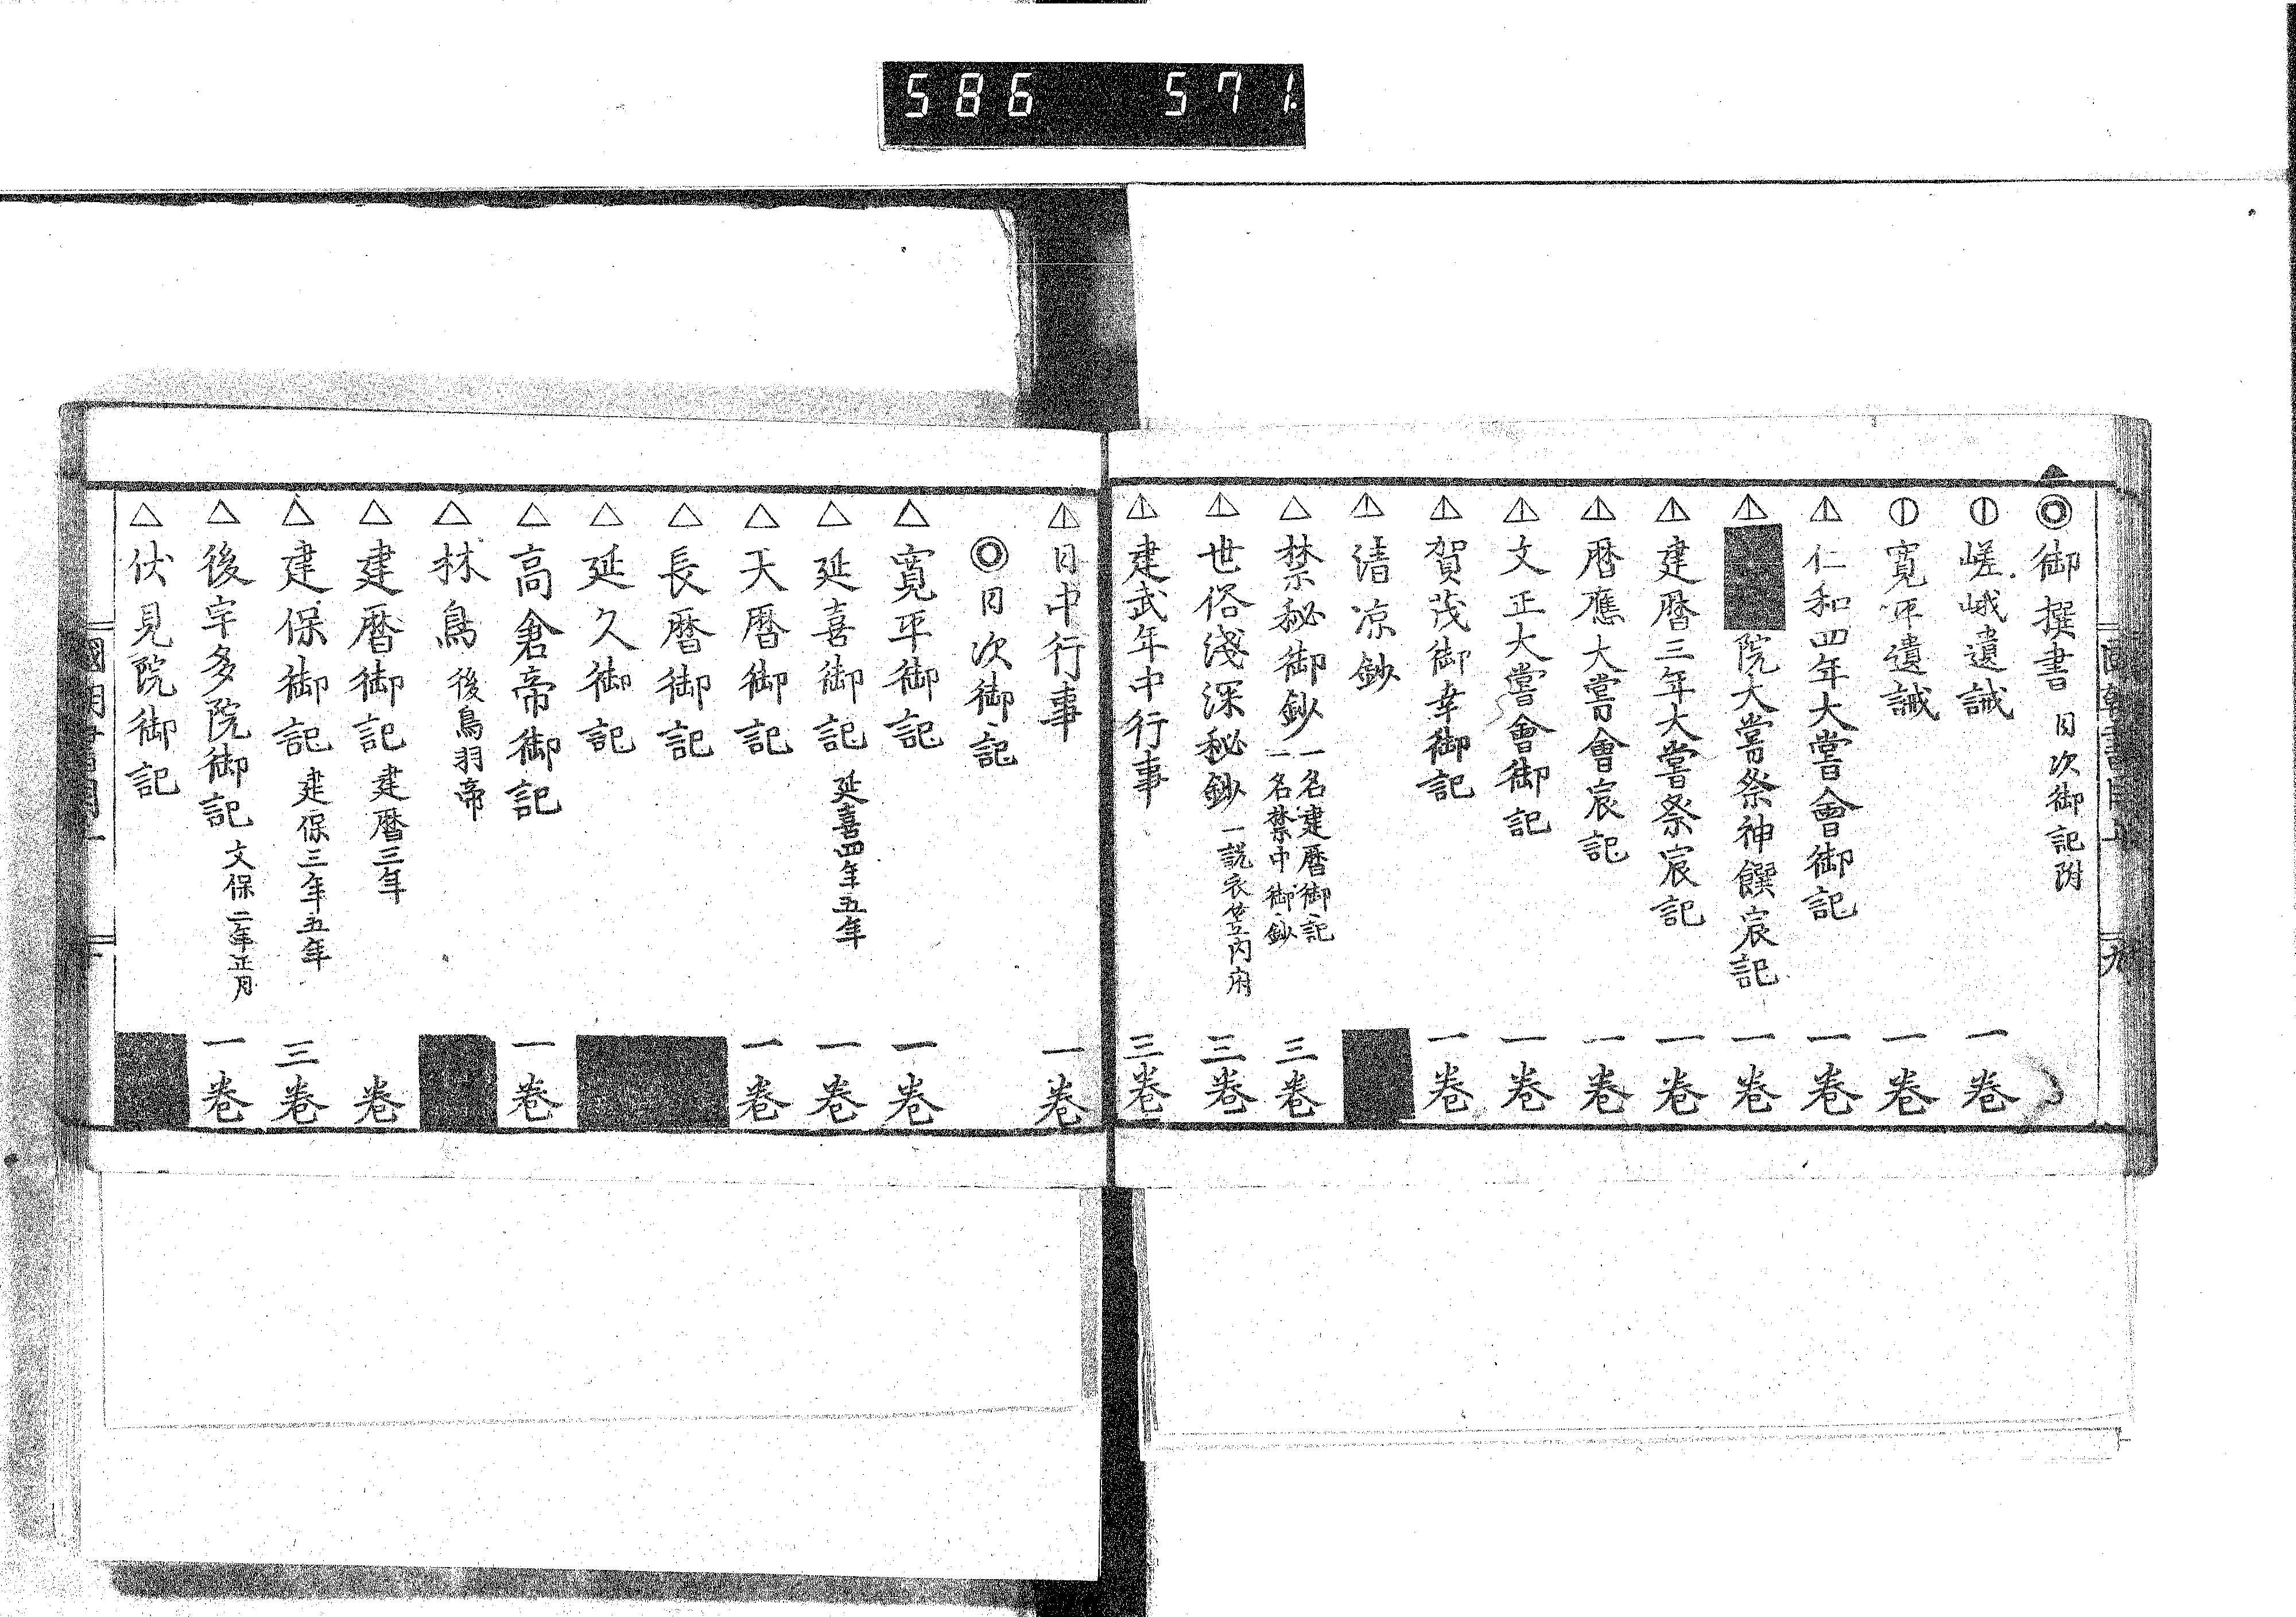 586 571
◎御撰書 日次御記附
嵯峨遺誡 一卷
寛平遺誡 一卷
仁和四年大嘗會御記 一卷
院大嘗祭神饌宸記 一卷
建暦三年大嘗祭宸記 一卷
暦應大嘗會宸記 一卷
文正大嘗會御記 一卷
賀茂御幸御記 一卷
清凉鈔
禁秘御鈔 一名建暦御記 一名禁中御鈔 三卷
世俗淺深秘鈔 一説衣笠内府 三卷
建武年中行事 三卷
日中行事 一卷
◎日次御記
△寛平御記 一卷
△延喜御記 延喜四年五年 一卷
△天暦御記 一卷
△長暦御記
△延久御記
△高倉帝御記 一卷
△林鳥 後鳥羽帝
△建暦御記 建暦三年 卷
△建保御記 建保三年五年 三卷
△後宇多院御記 文保二年正月 一卷
△伏見院御記